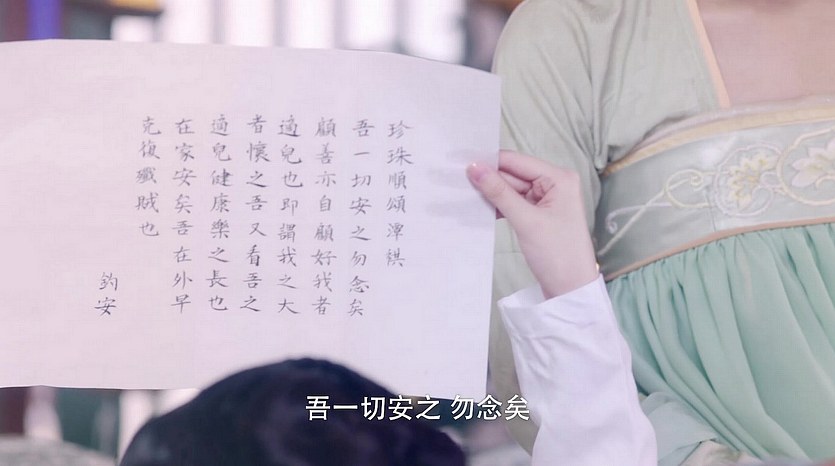 珍珠順頌潭祺
吾一切安之勿念矣
顧善亦自顧好我者
適兒也即謂我之大
者懷之吾又看吾之
適兒健康樂之長也
在家安矣吾在外早
克復殲賊也
鈞安
吾一切安之 勿念矣